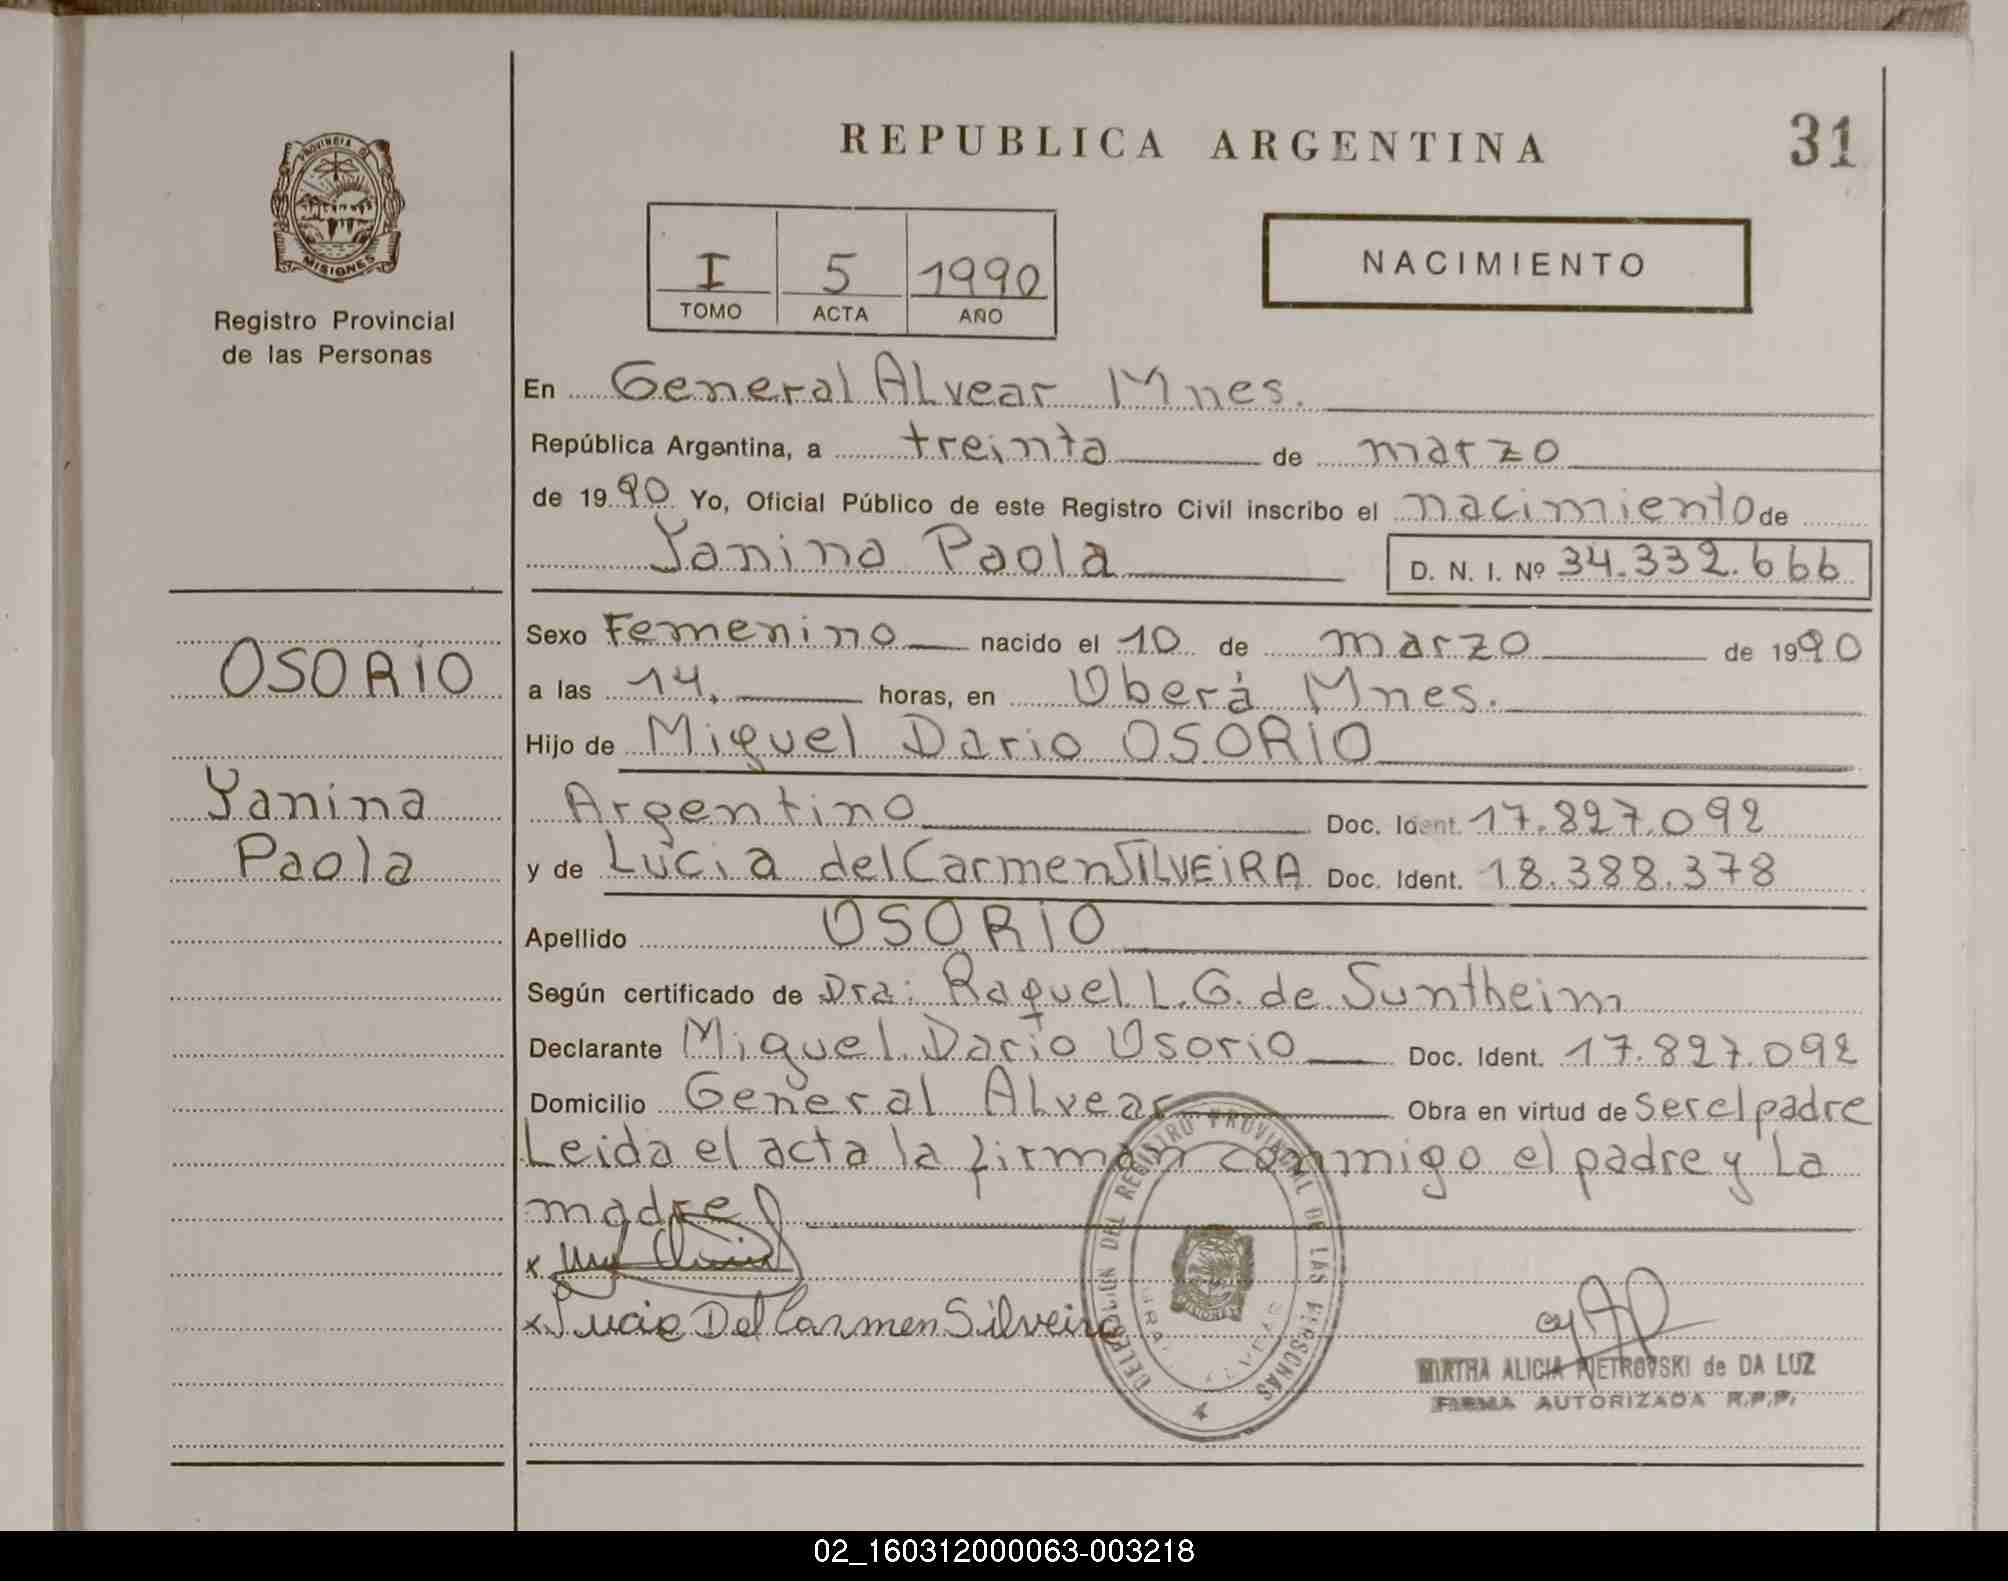 REPUBLICA ARGENTINA
31
PROVINCIA DE
MISIONES
Registro Provincial
de las Personas
I 5 1990
TOMO ACTA AÑO
NACIMIENTO
En General ALvear Mnes.
República Argentina, a treinta de marzo
de 1990 Yo, Oficial Público de este Registro Civil inscribo el nacimiento de
Yanina Paola D. N. I. Nº 34.332.666
OSORIO
Yanina
Paola
Sexo Femenino nacido el 10 de marzo de 1990
a las 14. horas, en Oberá Mnes.
Hijo de Miguel Dario OSORIO
Argentino Doc. Ident. 17.827.092
y de Lucia del Carmen SILVEiRA Doc. Ident. 18.388.378
Apellido OSORIO
Según certificado de Dra: Raquel L. G. de Suntheim
Declarante Miguel Dario Osorio Doc. Ident. 17.827.092
Domicilio General Alvear Obra en virtud de ser el padre
Leida el acta la firman conmigo el padre y La
madre
x
x Lucia Del Carmen Silveira
DELEGACION DEL REGISTRO PROVINCIAL DE LAS PERSONAS
MISIONES
MIRTHA ALICIA PIETROVSKI de DA LUZ
FIRMA AUTORIZADA R.P.P.
02_160312000063-003218